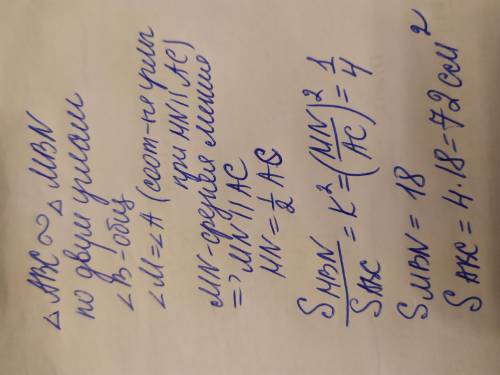 △ABC ∾ △MBN
по двум углам
∠B-общ
∠M=∠A (соот-не углы
при MN||AC)
MN-средняя линия
=> MN||AC
MN=1/2 AC
S MBN / S ABC = K² = (MN/AC)² = 1/4
S MBN = 18
S ABC = 4·18=72 см²